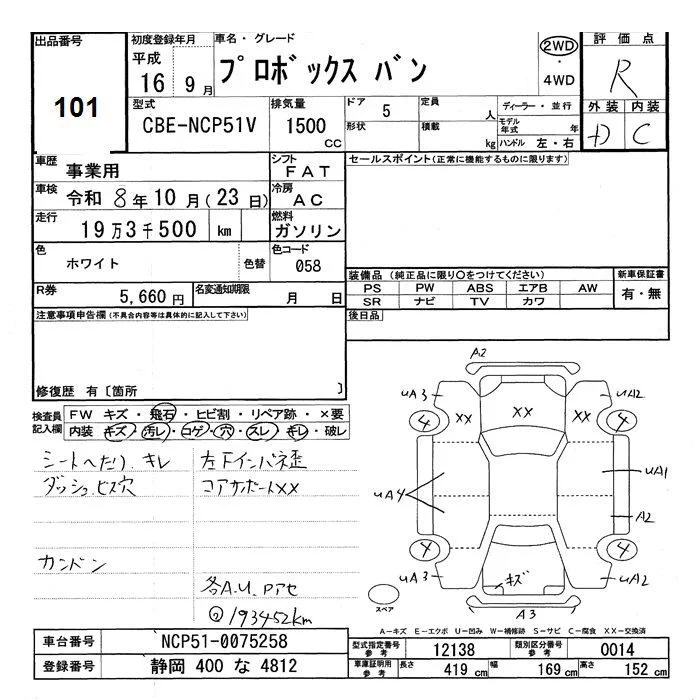 出品番号
101
初度登録年月
平成
16年9月
車名・グレード
プロボックス バン
2WD
・
4WD
評価点
R
外装 内装
D C
型式
CBE-NCP51V
排気量
1500
cc
ドア 5
形状
定員 人
積載 kg
ディーラー・並行
モデル年式 年
ハンドル 左・右
車歴 事業用
シフト FAT
車検 令和 8年10月(23日)
冷房 AC
走行 19万3千500 km
燃料 ガソリン
色 ホワイト 色替
色コード 058
R券 5,660円
名変通知期限 月 日
セールスポイント(正常に機能するものに限ります)
装備品 (純正品に限り○をつけてください)
PS PW ABS エアB AW
SR ナビ TV カワ
新車保証書
有・無
後日品
注意事項申告欄(不具合内容等は具体的に記入して下さい)
修復歴 有〔箇所 〕
検査員記入欄
FW キズ・飛石・ヒビ割・リペア跡・×要
内装 キズ・汚レ・コゲ・穴・スレ・キレ・破レ
シートへたり、キレ
ダッシュビス穴
カンドン
左下インパネ歪
コアサポートXX
各A.U.Pアセ
193452km
A2
uA3
uA2
4
XX
XX
XX
4
uA4
uA1
A2
4
4
uA3
uA2
キズ
A3
スペア
A-キズ E-エクボ U-凹み W-補修跡 S-サビ C-腐食 XX-交換済
車台番号 NCP51-0075258
登録番号 静岡 400 な 4812
型式指定番号 参考 12138
類別区分番号 参考 0014
車庫証明用 参考 長さ 419 cm 幅 169 cm 高さ 152 cm